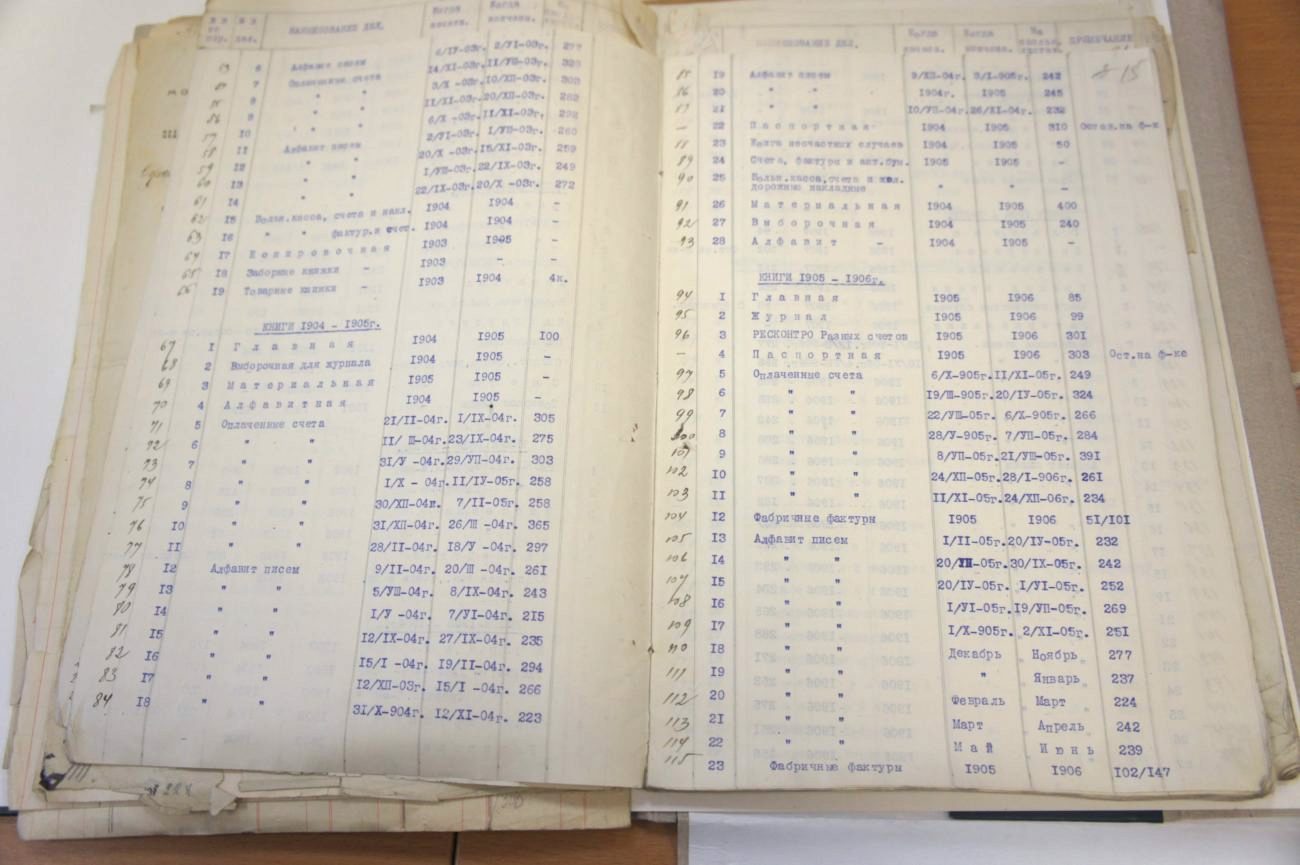 НАИМЕНОВАНИЕ ДЕЛ. Когда начата. Когда кончена.
53 6 Алфавит писем 6/IУ-03г. 2/УI-03г. 277
54 7 Оплаченные счета 14/XI-03г. II/УШ-03г. 323
55 8 " " 3/X -03г. 10/XП-03г. 303
56 9 " " II/XI-03г. 20/XП-03г. 282
57 10 " " 6/X -03г. II/XI-03г. 292
58 11 Алфавит писем 2/УI-03г. I/УП-03г. 260
59 12 " " 20/X -03г. 15/XI-03г. 259
60 13 " " I/УШ-03г. 22/IX-03г. 249
61 14 " " 22/IX-03г. 20/X -03г. 272
62 15 Больн.касса, счета и накл. 1904 1904 -
63 16 " " фактур.и счет. 1904 1904 -
64 17 Копировочная 1903 1905 -
65 18 Заборные книжки - 1903 - -
66 19 Товарные книжки - 1903 1904 4к.
КНИГИ 1904 - 1905г.
67 1 Главная 1904 1905 100
68 2 Выборочная для журнала 1904 1905 -
69 3 Материальная 1905 1905 -
70 4 Алфавитная 1904 1905 -
71 5 Оплаченные счета 21/II-04г. I/IX-04г. 305
72 6 " " II/ Ш-04г. 23/IX-04г. 275
73 7 " " 31/У -04г. 29/УП-04г. 303
74 8 " " I/X - 04г. II/IУ-05г. 258
75 9 " " 30/XП-04г. 7/II-05г. 258
76 10 " " 31/XП-04г. 26/Ш -04г. 365
77 11 " " 28/II-04г. 18/У -04г. 297
78 12 Алфавит писем 9/II-04г. 20/Ш -04г. 261
79 13 " " 5/УШ-04г. 8/IX-04г. 243
80 14 " " I/У -04г. 7/УI-04г. 215
81 15 " " 12/IX-04г. 27/IX-04г. 235
82 16 " " 15/I -04г. 19/II-04г. 294
83 17 " " 12/XП-03г. 15/I -04г. 266
84 18 " " 31/X-904г. 12/XI-04г. 223
НАИМЕНОВАНИЕ ДЕЛ. Когда начата. Когда кончена. На скольк. листах. ПРИМЕЧАНИЕ
85 19 Алфавит писем 9/XП-04г. 3/I-905г. 242
86 20 " " 1904г. 1905 245
87 21 " " 10/УП-04г. 26/XI-04г. 232
- 22 Паспортная 1904 1905 310 Остав.на ф-к
88 23 Книга несчастных случаев 1904 1905 50
89 24 Счета, фактуры и акт.бум. 1905 1905 -
90 25 Больн.касса,счета и жел.
дорожные накладные " " -
91 26 Материальная 1904 1905 400
92 27 Выборочная 1904 1905 240
93 28 Алфавит - 1904 1905 -
КНИГИ 1905 - 1906г.
94 1 Главная 1905 1906 85
95 2 Журнал 1905 1906 99
96 3 РЕСКОНТРО Разных счетов 1905 1906 301
- 4 Паспортная 1905 1906 303 Ост.на ф-ке
97 5 Оплаченные счета 6/X-905г. II/XI-05г. 249
98 6 " " 19/Ш-905г. 20/IУ-05г. 324
99 7 " " 22/УШ-05г. 6/X-905г. 266
100 8 " " 28/У-905г. 7/УП-05г. 284
101 9 " " 8/УП-05г. 21/УШ-05г. 391
102 10 " " 24/XП-05г. 28/I-906г. 261
103 11 " " II/XI-05г. 24/XП-06г. 234
104 12 Фабричные фактуры 1905 1906 51/101
105 13 Алфавит писем I/II-05г. 20/IУ-05г. 232
106 14 " " 20/УП-05г. 30/IX-05г. 242
107 15 " " 20/IУ-05г. I/УI-05г. 252
108 16 " " I/УI-05г. 19/УП-05г. 269
109 17 " " I/X-905г. 2/XI-05г. 251
110 18 " " Декабрь Ноябрь 277
111 19 " " " Январь 237
112 20 " " Февраль Март 224
113 21 " " Март Апрель 242
114 22 " " Май Июнь 239
115 23 Фабричные фактуры 1905 1906 102/147